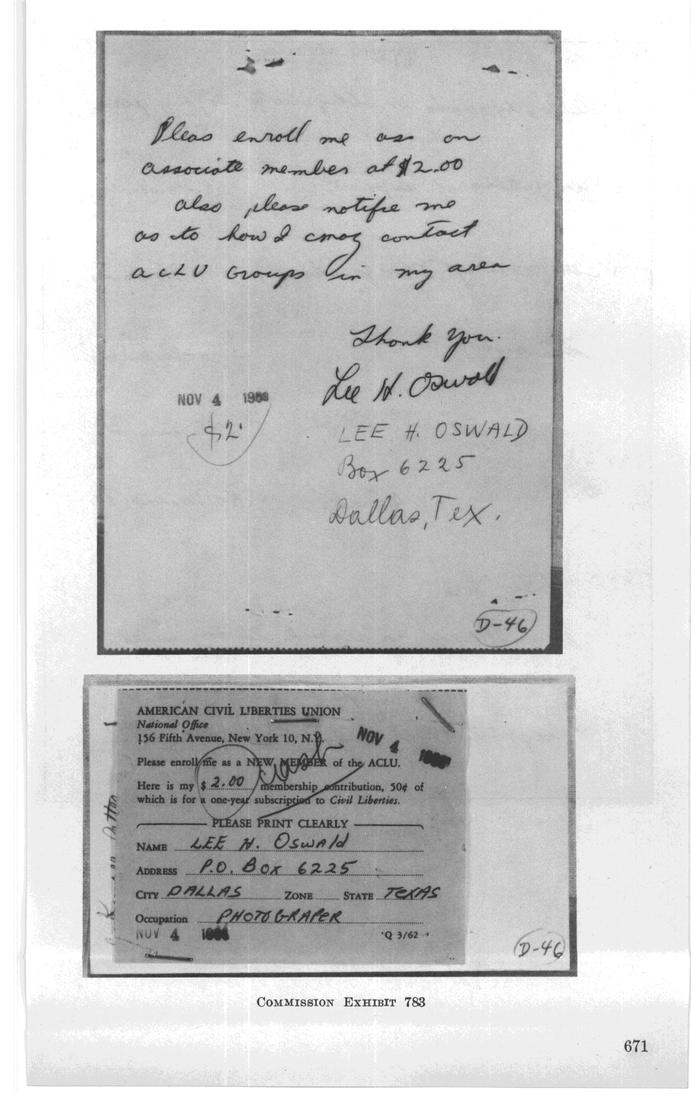 Pleas enroll me as an
associate member at $2.00
also please notifie me
as to how I cmay contact
ACLU Groups in my area
Thank You.
Lee H. Oswald
NOV 4 1963
$2.
LEE H. OSWALD
Box 6225
Dallas, Tex.
D-46
AMERICAN CIVIL LIBERTIES UNION
National Office
156 Fifth Avenue, New York 10, N.Y.
NOV 4
Please enroll me as a NEW MEMBER of the ACLU.
cash
Here is my $ 2.00 membership contribution, 50¢ of
which is for a one-year subscription to Civil Liberties.
PLEASE PRINT CLEARLY
NAME LEE H. OSWALD
ADDRESS P.O. BOX 6225
CITY DALLAS ZONE STATE TEXAS
Occupation PHOTOGRAPER
NOV 4
Q 3/62
D-46
COMMISSION EXHIBIT 783
671